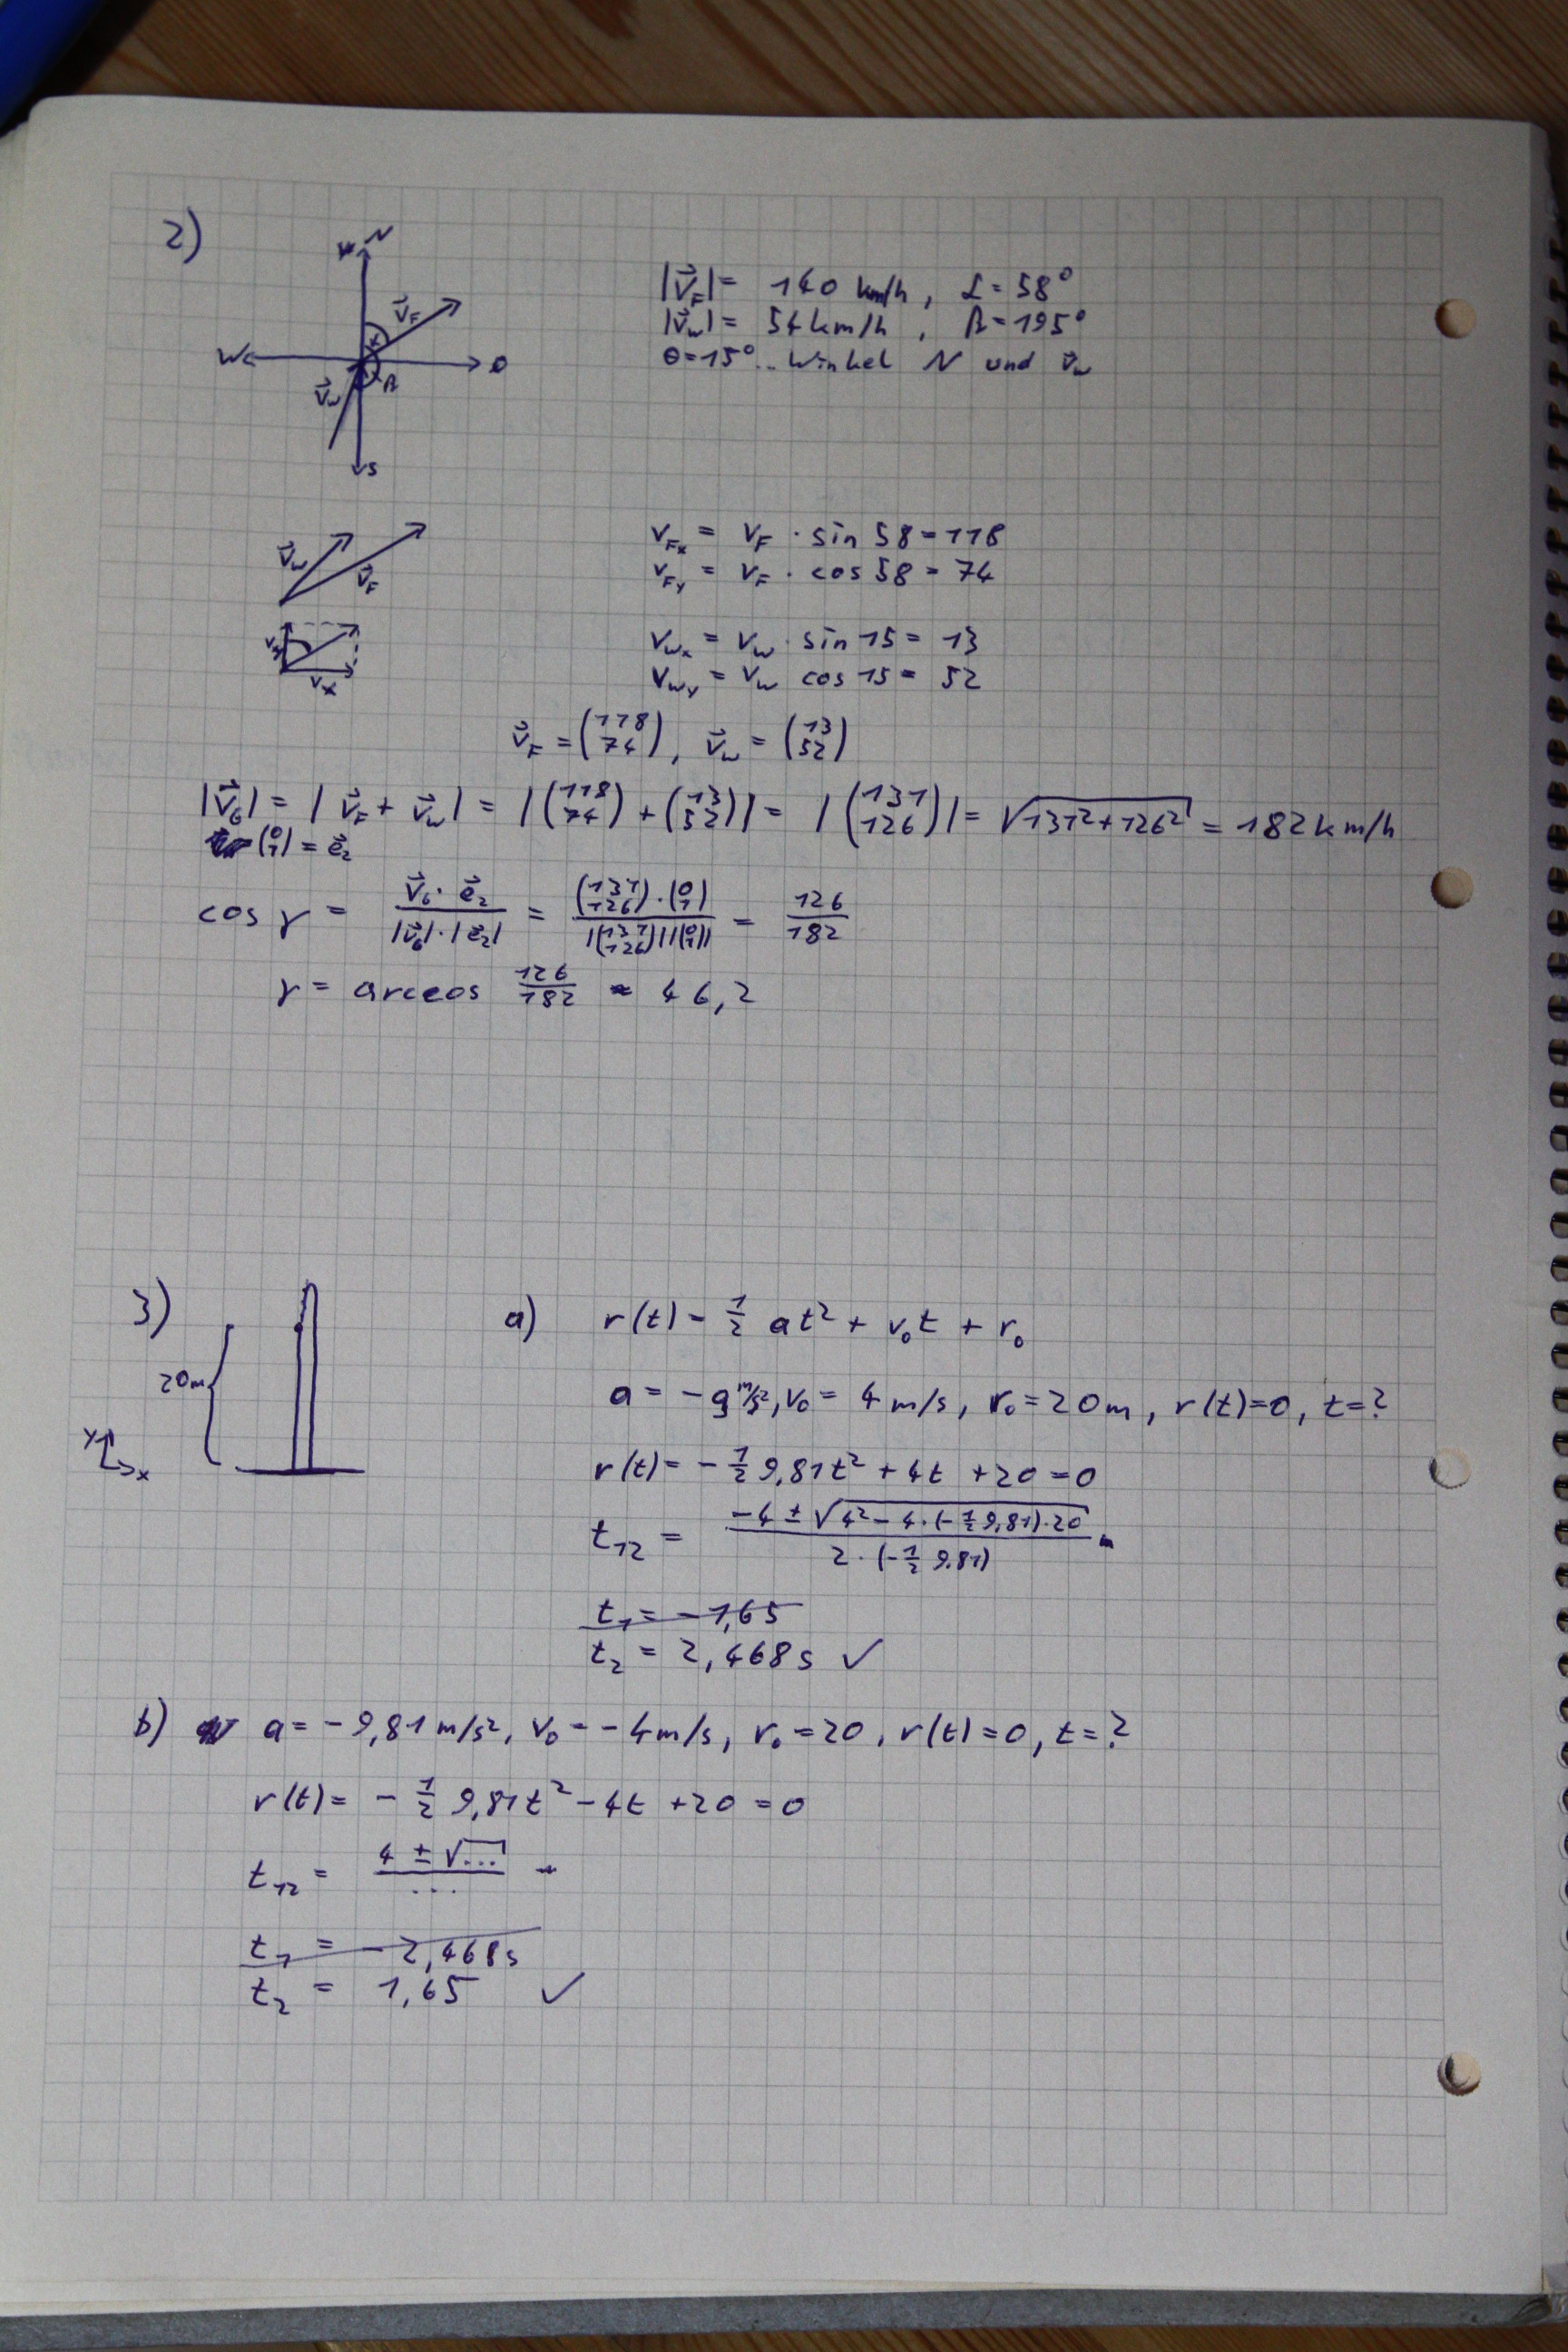 2)
N
W
O
S
v⃗_F
α
β
v⃗_w
|v⃗_F| = 140 km/h, α = 58°
|v⃗_w| = 54 km/h, β = 195°
θ = 15° .. Winkel N und v⃗_w
v⃗_w
v⃗_F
v_Fx = v_F · sin 58 = 118
v_Fy = v_F · cos 58 = 74
v_y
v_x
v_wx = v_w · sin 15 = 13
v_wy = v_w cos 15 = 52
v⃗_F = (118 74), v⃗_w = (13 52)
|v⃗_G| = | v⃗_F + v⃗_w | = | (118 74) + (13 52) | = | (131 126) | = √(131² + 126²) = 182 km/h
(0 1) = e⃗_2
cos γ = (v⃗_G · e⃗_2) / (|v⃗_G| · |e⃗_2|) = ((131 126) · (0 1)) / (|(131 126)| |(0 1)|) = 126/182
γ = arccos 126/182 = 46,2
3)
20m
y
x
a) r(t) = 1/2 at² + v₀t + r₀
a = -g m/s², v₀ = 4 m/s, r₀ = 20m, r(t) = 0, t = ?
r(t) = - 1/2 9,81t² + 4t + 20 = 0
t_12 = (-4 ± √(4² - 4·(-1/2 9,81)·20)) / (2 · (-1/2 9.81)) =
t_1 = -1,65
t_2 = 2,468s ✓
b) a = -9,81 m/s², v₀ = -4m/s, r₀ = 20, r(t) = 0, t = ?
r(t) = - 1/2 9,81t² - 4t + 20 = 0
t_12 = (4 ± √...) / ... =
t_1 = -2,468s
t_2 = 1,65 ✓